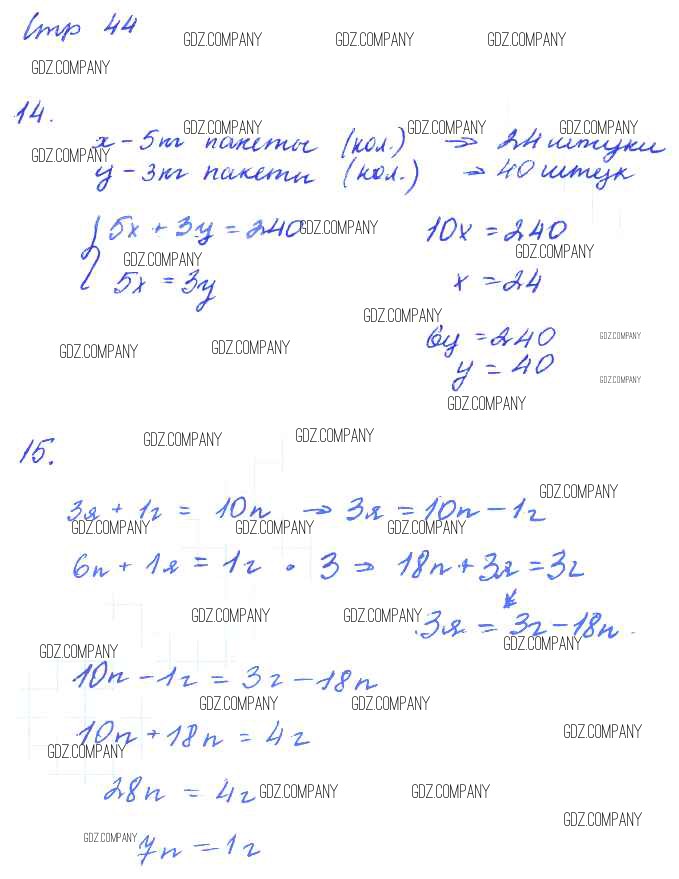 Стр 44
GDZ.COMPANY GDZ.COMPANY GDZ.COMPANY
GDZ.COMPANY
14.
GDZ.COMPANY GDZ.COMPANY GDZ.COMPANY
x - 5кг пакеты (кол.) → 24 штуки
GDZ.COMPANY
y - 3кг пакеты (кол.) → 40 штук
5x + 3y = 240 GDZ.COMPANY 10x = 240
GDZ.COMPANY GDZ.COMPANY
5x = 3y x = 24
GDZ.COMPANY
6y = 240 GDZ.COMPANY
GDZ.COMPANY GDZ.COMPANY
y = 40 GDZ.COMPANY
GDZ.COMPANY
15. GDZ.COMPANY GDZ.COMPANY
GDZ.COMPANY
3я + 1г = 10п → 3я = 10п - 1г
GDZ.COMPANY GDZ.COMPANY GDZ.COMPANY
6п + 1я = 1г · 3 ⇒ 18п + 3я = 3г
GDZ.COMPANY GDZ.COMPANY
3я = 3г - 18п
GDZ.COMPANY GDZ.COMPANY
10п - 1г = 3г - 18п
GDZ.COMPANY GDZ.COMPANY
10п + 18п = 4г GDZ.COMPANY
GDZ.COMPANY
28п = 4г GDZ.COMPANY GDZ.COMPANY
GDZ.COMPANY
GDZ.COMPANY
7п = 1г